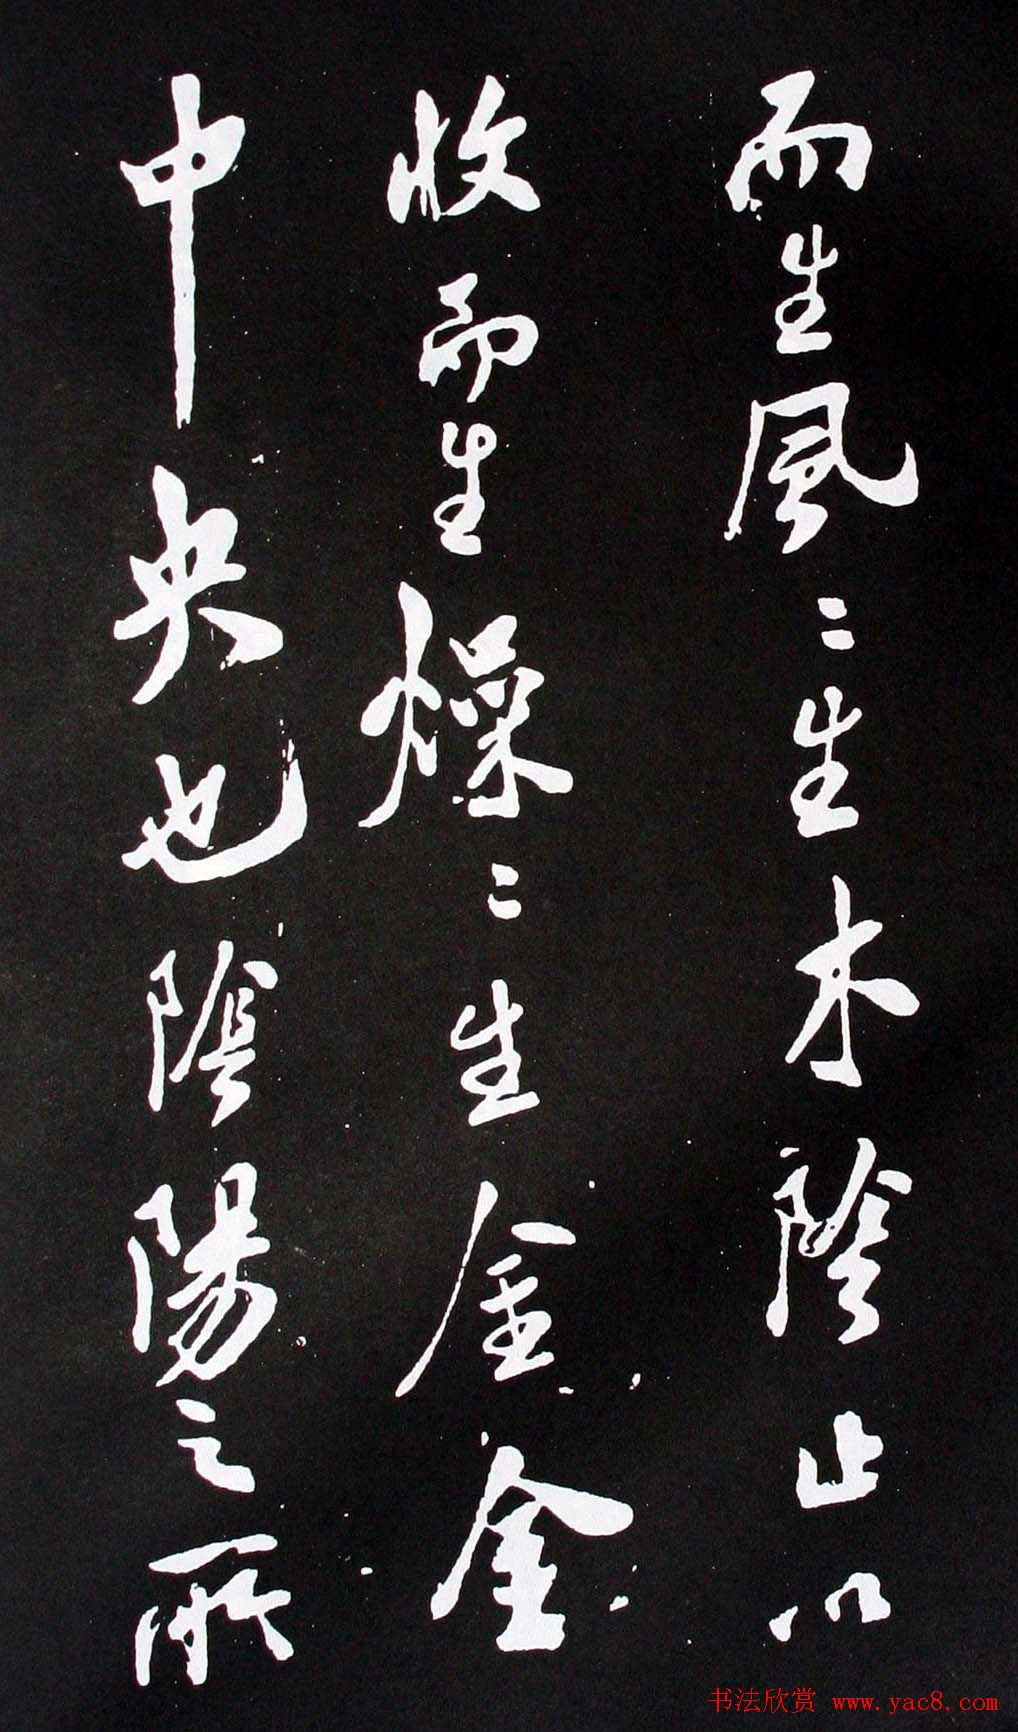 而生風〻生木陰止以
收而生燥〻生金金
中央也陰陽之所
书法欣赏 www.yac8.com